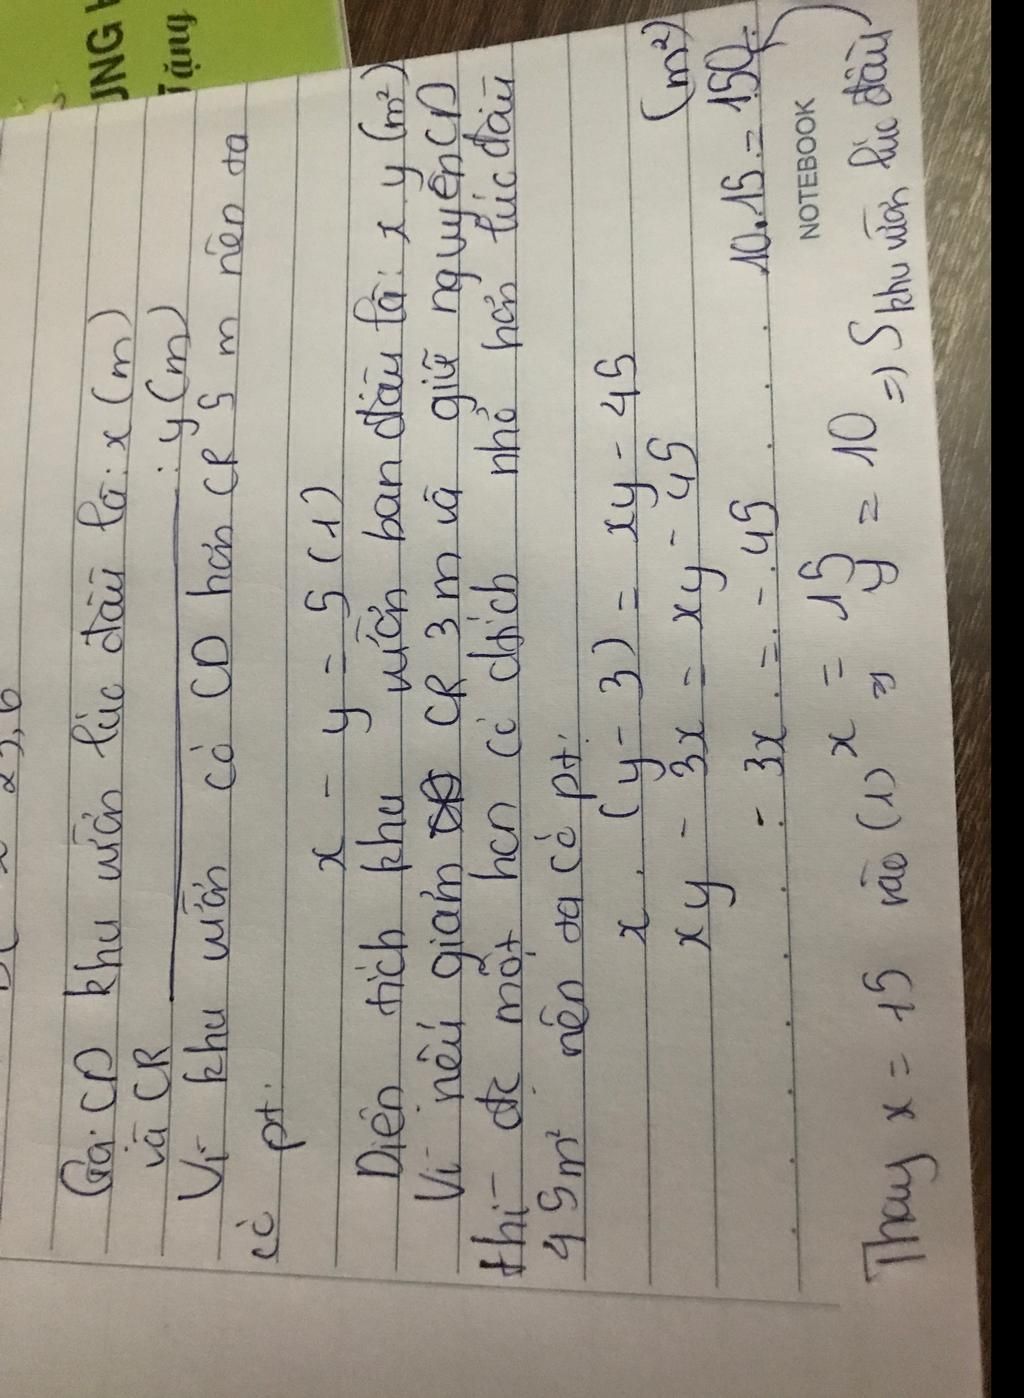 UNG
Tặng
Gọi CD khu vườn lúc đầu là: x (m)
và CR : y (m)
Vì khu vườn có CD hơn CR 5 m nên ta
có pt:
x - y = 5 (1)
Diện tích khu vườn ban đầu là: x y (m²)
Vì nếu giảm CR 3 m và giữ nguyên CD
thì đc một hcn có dtích nhỏ hơn lúc đầu
45m² nên ta có pt:
x . (y - 3) = xy - 45
xy - 3x = xy - 45
- 3x = - 45
x = 15
Thay x = 15 vào (1) => y = 10 => S khu vườn lúc đầu
10.15 = 150 (m²)
NOTEBOOK